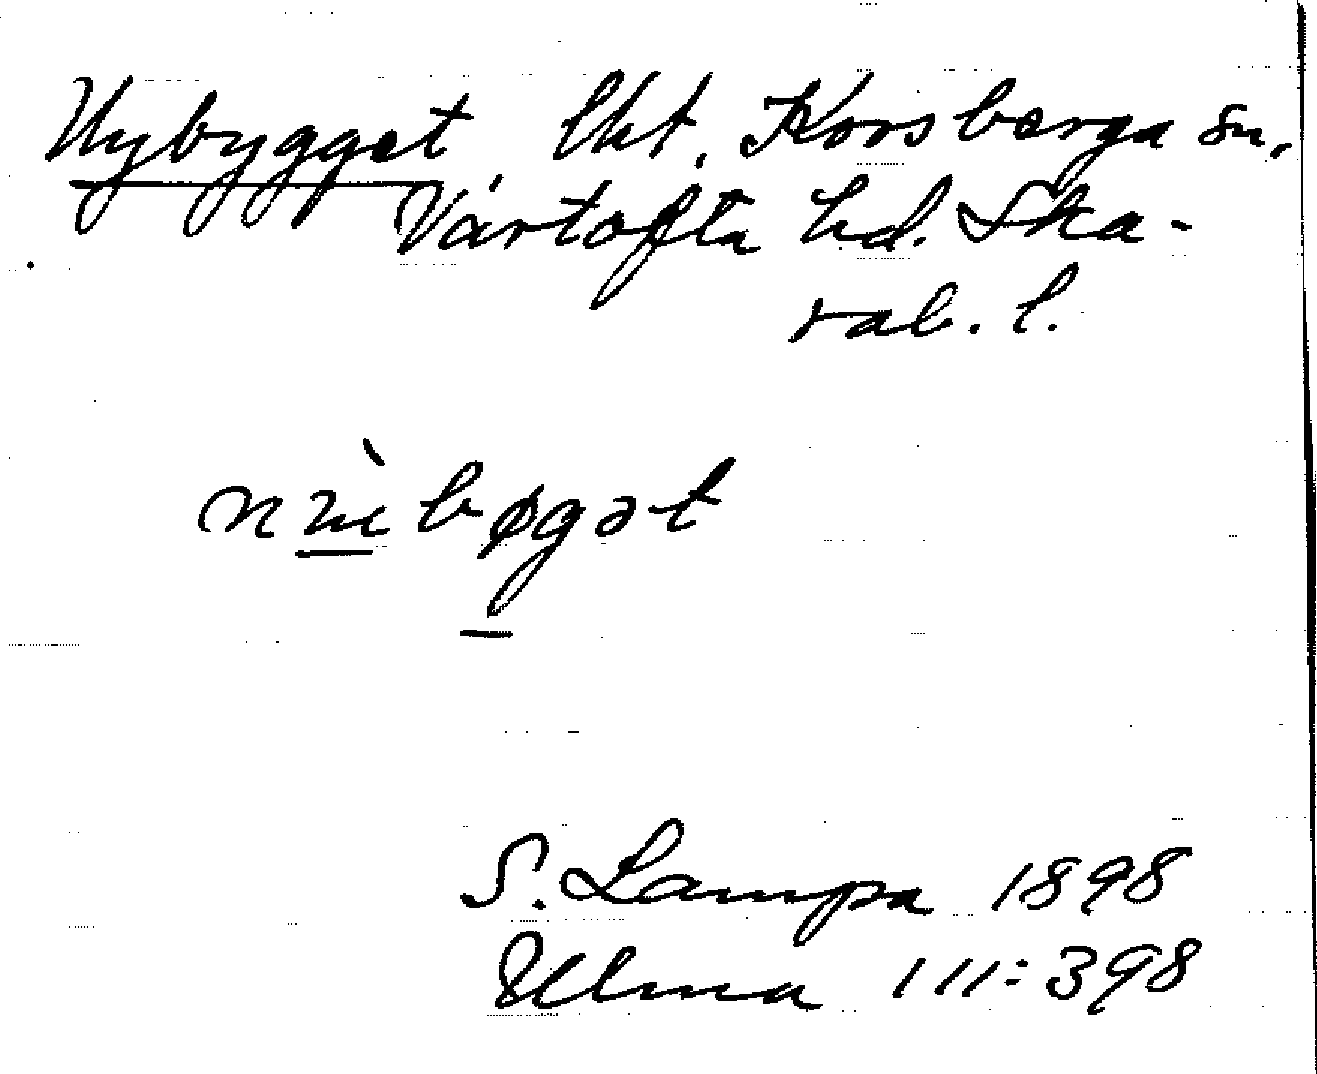 Nybygget lht. Korsberga sn.
Vårtofta hd. Ska-
rab. l.
S. Lampa 1898
Ulma 111:398